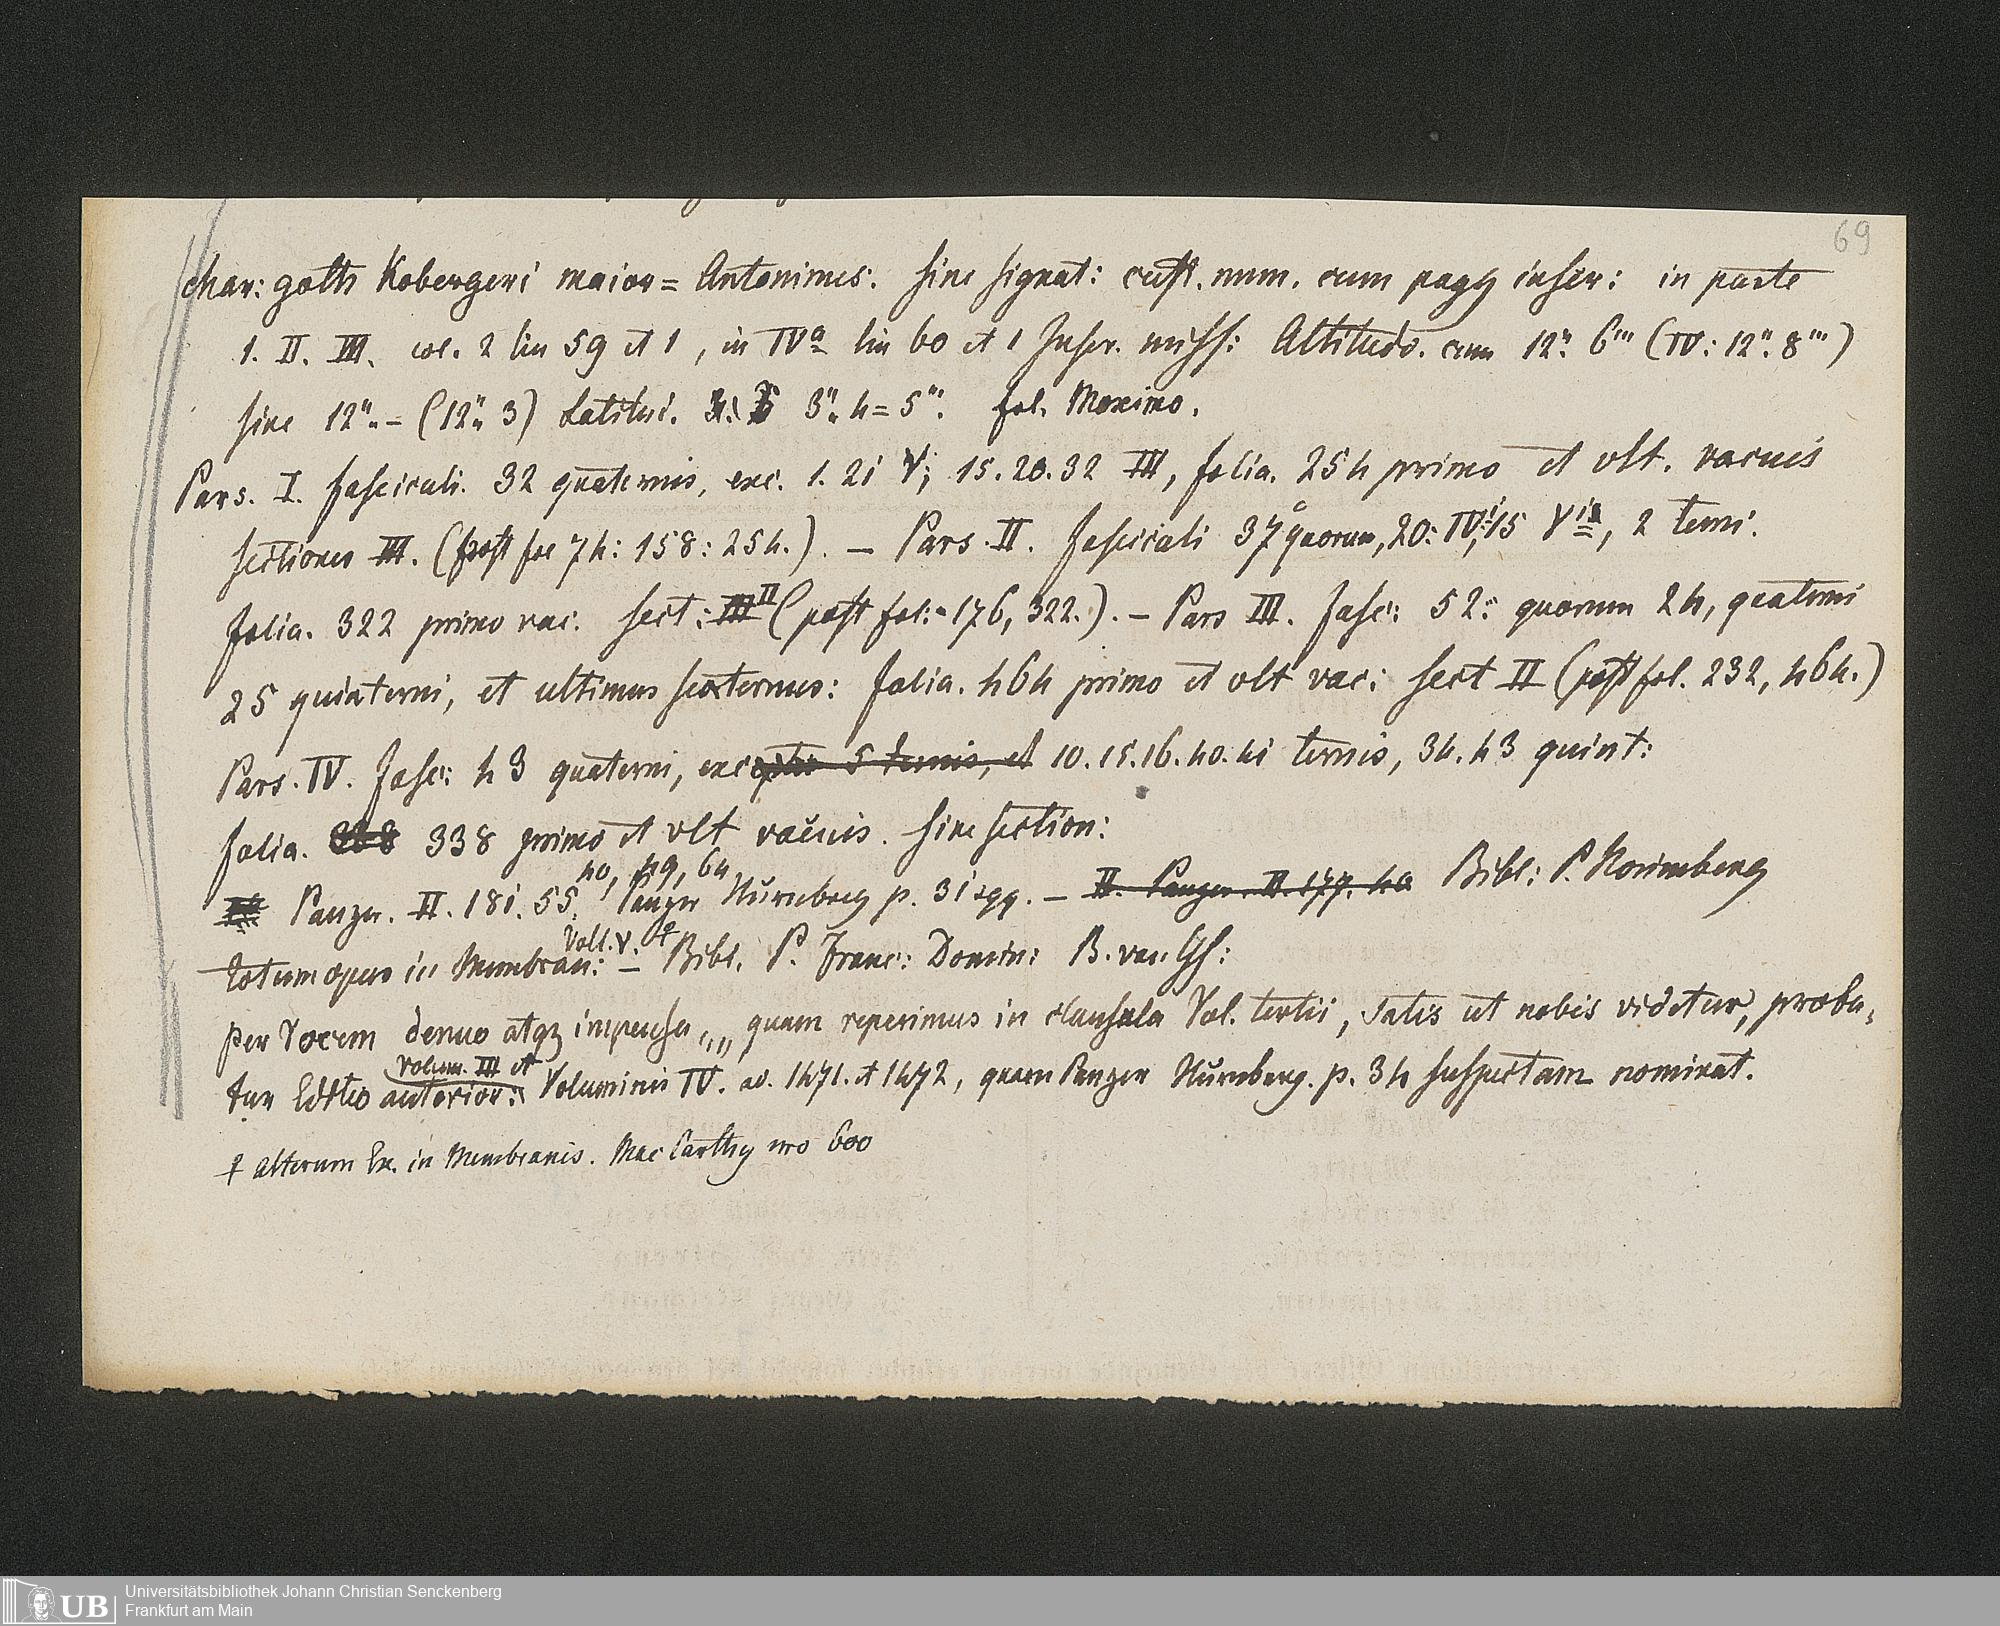 69
char: goth Kobergeri maior = Antoninus. sine signat: cust. num. cum pagg inscr: in parte
1. II. III. col. 2 lin 59 et 1, in IVa lin 60 et 1 Inscr. miss: Altitudo. cum 12". 6"' (IV: 12". 8"')
sine 12". - (12". 3) Latitud. 3". 4 = 5"'. fol. Maximo.
Pars. I. fasciculi. 32 quaternis, exc. 1. 21 V; 15. 28. 32 III, folia. 254 primo et vlt. vacuis
sectiones III. (post fol 74: 158: 254.). — Pars. II. fasciculi 37 quorum, 20: IVi; 15 Vis, 2 terni.
folia. 322 primo vac. sect: II (post fol: 176, 322.). — Pars III. fasc: 52: quorum 24, quaterni
25 quinterni, et ultimus sexternus: folia. 464 primo et vlt vac: sect II (post fol. 232, 464.)
Pars. IV. fasc: 43 quaterni, exceptis 5 ternis, et 10. 15. 16. 40. 41 ternis, 34. 43 quint:
folia. 338 primo et vlt vacuis. sine section:
40, 49, 64
Panzer. II. 181. 55, Panzer Nürnberg p. 31 sqq. — II. Panzer. II. 177. 40 Bibl: P. Norimberg
Voll. V. ♀
totum opus in Membran: — Bibl. P. Franc: Domin: B. van
per Vocem denuo atqz impensa „„ quam reperimus in clausula Vol. tertii, satis ut nobis videtur, proba-
volum. III et
tur Editio anterior: Voluminis IV. ad. 1471. et 1472, quam Panzer Nürnberg. p. 34 suspectam nominat.
♀ alterum Ex. in Membranis. Mac Carthy nro 600
UB Universitätsbibliothek Johann Christian Senckenberg
Frankfurt am Main